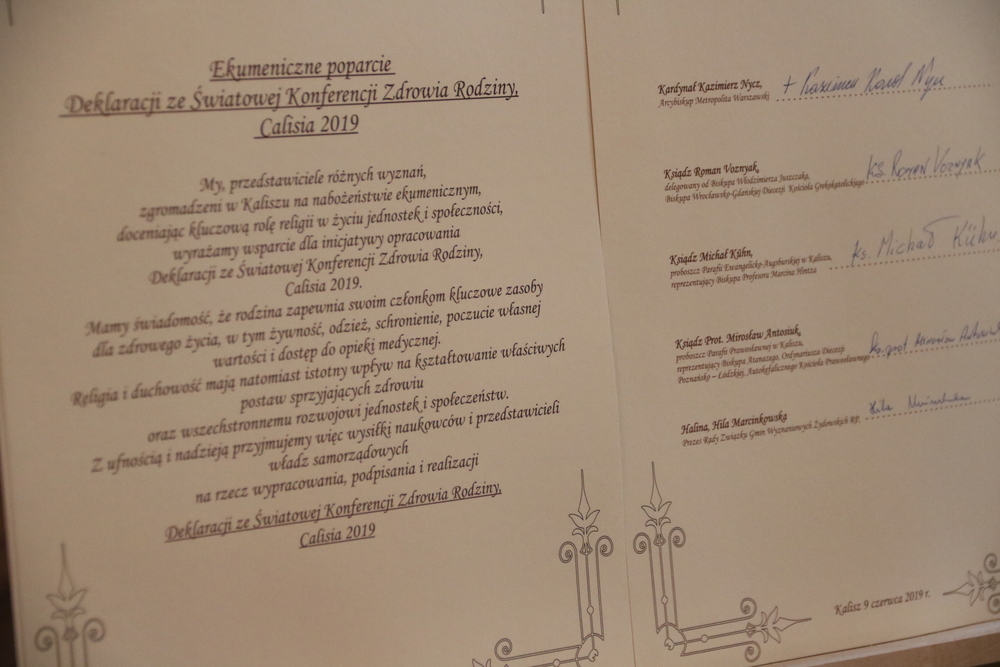 Ekumeniczne poparcie
Deklaracji ze Światowej Konferencji Zdrowia Rodziny,
Calisia 2019
My, przedstawiciele różnych wyznań,
zgromadzeni w Kaliszu na nabożeństwie ekumenicznym,
doceniając kluczową rolę religii w życiu jednostek i społeczności,
wyrażamy wsparcie dla inicjatywy opracowania
Deklaracji ze Światowej Konferencji Zdrowia Rodziny,
Calisia 2019.
Mamy świadomość, że rodzina zapewnia swoim członkom kluczowe zasoby
dla zdrowego życia, w tym żywność, odzież, schronienie, poczucie własnej
wartości i dostęp do opieki medycznej.
Religia i duchowość mają natomiast istotny wpływ na kształtowanie właściwych
postaw sprzyjających zdrowiu
oraz wszechstronnemu rozwojowi jednostek i społeczeństw.
Z ufnością i nadzieją przyjmujemy więc wysiłki naukowców i przedstawicieli
władz samorządowych
na rzecz wypracowania, podpisania i realizacji
Deklaracji ze Światowej Konferencji Zdrowia Rodziny,
Calisia 2019
Kardynał Kazimierz Nycz,
Arcybiskup Metropolita Warszawski
+ Kazimierz Kard Nycz
Ksiądz Roman Voznyak,
delegowany od Biskupa Włodzimierza Juszczaka,
Biskupa Wrocławsko-Gdańskiej Diecezji Kościoła Grekokatolickiego
ks. Roman Voznyak
Ksiądz Michał Kühn,
proboszcz Parafii Ewangelicko-Augsburskiej w Kaliszu,
reprezentujący Biskupa Profesora Marcina Hintza
ks. Michał Kühn
Ksiądz Prot. Mirosław Antosiuk,
proboszcz Parafii Prawosławnej w Kaliszu,
reprezentujący Biskupa Atanazego, Ordynariusza Diecezji
Poznańsko – Łódzkiej, Autokefalicznego Kościoła Prawosławnego
ks. prot. Mirosław
Halina, Hila Marcinkowska
Prezes Rady Związku Gmin Wyznaniowych Żydowskich RP.
Hila
Kalisz 9 czerwca 2019 r.